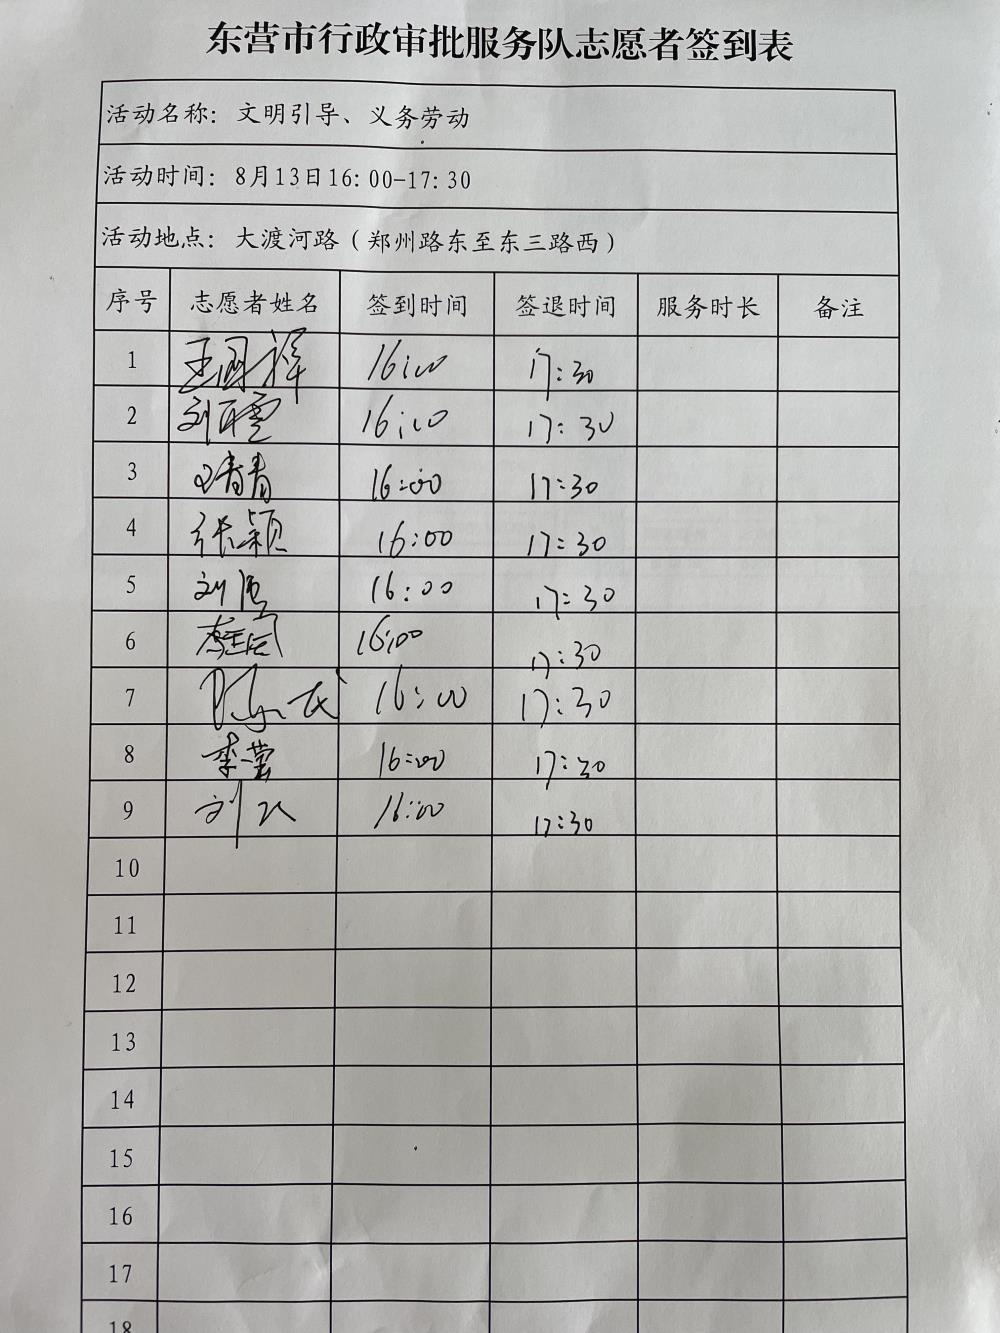 东营市行政审批服务队志愿者签到表
活动名称：文明引导、义务劳动
活动时间：8月13日16:00-17:30
活动地点：大渡河路（郑州路东至东三路西）
序号 志愿者姓名 签到时间 签退时间 服务时长 备注
1 王国祥 16:00 17:30
2 刘 16:00 17:30
3 王青青 16:00 17:30
4 张颖 16:00 17:30
5 刘 16:00 17:30
6 16:00 17:30
7 陈 16:00 17:30
8 李莹 16:00 17:30
9 刘 16:00 17:30
10
11
12
13
14
15
16
17
18